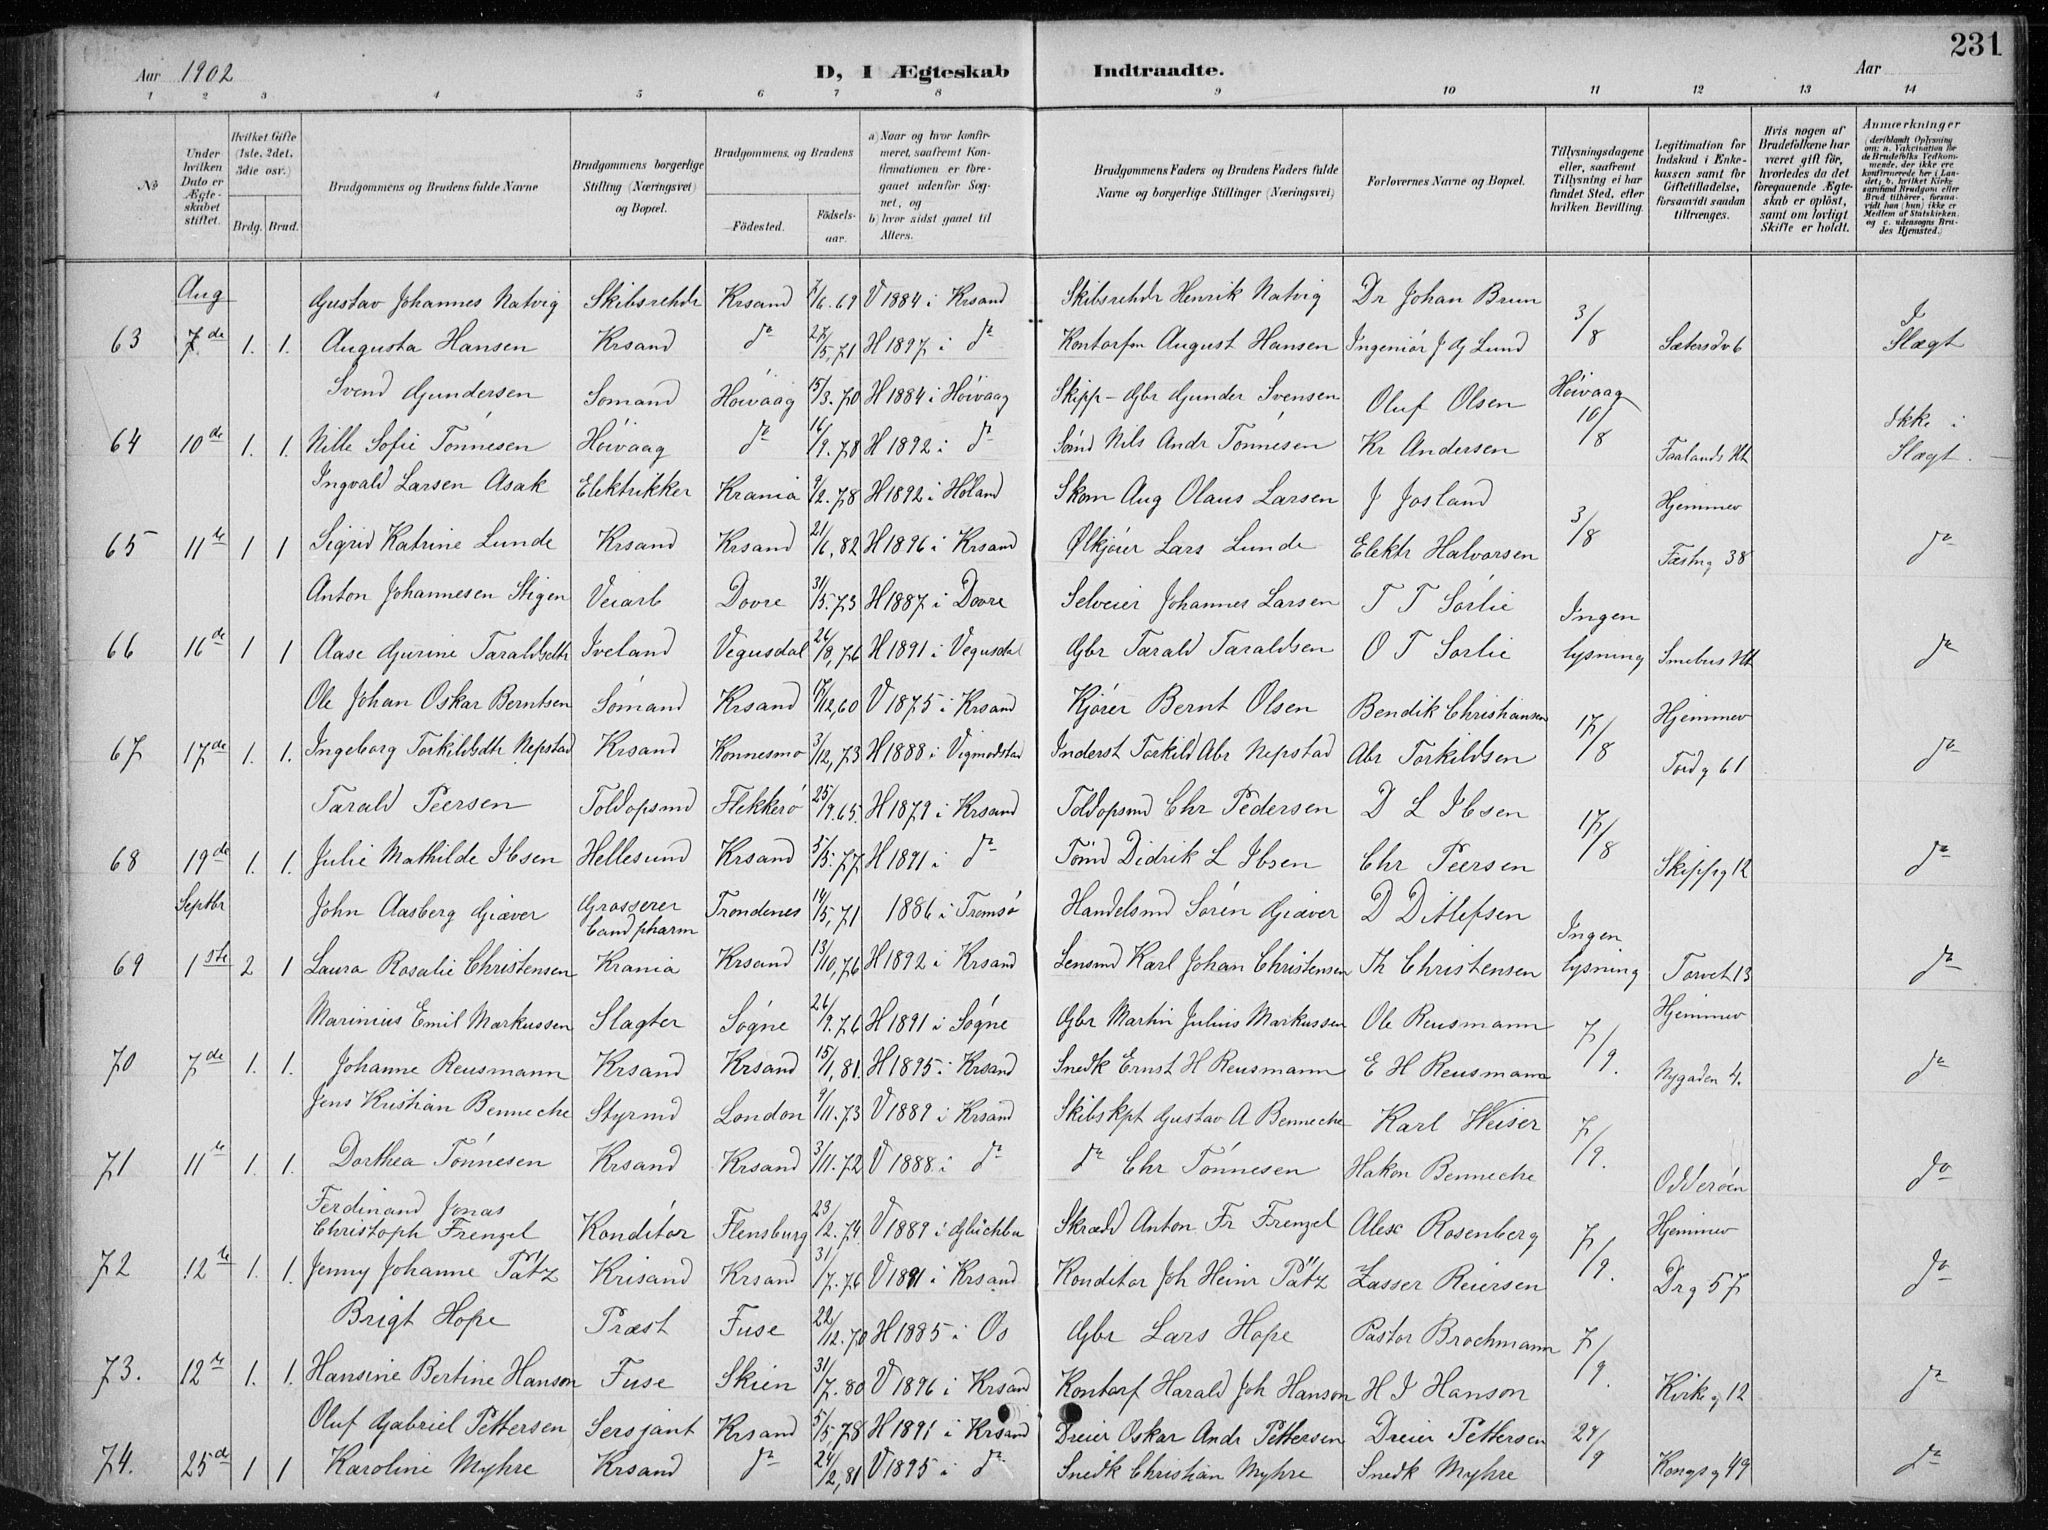 231
Aar 1902 D, I Ægteskab Indtraadte. Aar
1 2 3 4 5 6 7 8 9 10 11 12 13 14
No
Under hvilken Dato er Ægteskabet stiftet.
Hvilket Gifte (1ste, 2det, 3die osv.)
Brdg. Brud.
Brudgommens og Brudens fulde Navne
Brudgommens borgerlige Stilling (Næringsvei) og Bopæl.
Brudgommens og Brudens
Fødested. Fødselsaar.
a) Naar og hvor konfirmeret, saafremt Konfirmationen er foregaaet udenfor Sognet, og
b) hvor sidst gaaet til Alters.
Brudgommens Faders og Brudens Faders fulde Navne og borgerlige Stillinger (Næringsvei)
Forlovernes Navne og Bopæl.
Tillysningsdagene eller, saafremt Tillysning ei har fundet Sted, efter hvilken Bevilling.
Legitimation for Indskud i Enkekassen samt for Giftetilladelse, forsaavidt saadan tiltrænges.
Hvis nogen af Brudefolkene har været gift før, hvorledes da det foregaaende Ægteskab er opløst, samt om lovligt Skifte er holdt.
Anmærkninger (deriblandt Oplysning om: a. Vaccination for de Brudefolks Vedkommende, der ikke ere konfirmerede her i Landet; b. hvilket Kirkesamfund Brudgom eller Brud tilhører, forsaavidt han (hun) ikke er Medlem af Statskirken, og c. udensogns Brudes Hjemsted.)
Aug
Gustav Johannes Natvig Skibsrehdr Krsand /6.69 V 1884 i Krsand Skibsrehdr Henrik Natvig Dr Johan Brun 3/8 I
63 7de 1. 1. Augusta Hansen Krsand do 27/5,71 H 1897 i do Kontorfm August Hansen Ingeniør J G Lund Sætersdv 6 Slægt
Svend Gundersen Sømand Høivaag 15/3.70 H 1884 i Høivaag Skipp-Gbr Gunder Svensen Oluf Olsen Høivaag 10/8 Ikke i
64 10de 1. 1. Nille Sofie Tønnesen Høivaag do 16/9.78 H 1892 i do Sømd Nils Andr Tønnesen Kr Andersen Faalands Ht Slægt
Ingvald Larsen Asak Elektrikker Krania 9/2.78 H 1892 i Høland Skom Aug Olaus Larsen J Josland 3/8 Hjemmev
65 11te 1 1 Sigrid Katrine Lunde Krsand Krsand 21/6,82 H 1896 i Krsand Ølkjører Lars Lunde Elektr Halvorsen Fæstng 38 do
Anton Johannesen Stigen Veiarb Dovre 31/5.73 H 1887 i Dovre Selveier Johannes Larsen T T Sørlie Ingen
66 16de 1 1 Aase Gurine Taraldsdtr Iveland Vegusdal 26/8,76 H 1891 i Vegusdal Gbr Tarald Taraldsen O T Sørlie lysning Smebus Ht do
Ole Johan Oskar Berntsen Sømand Krsand /12,60 V 1875 i Krsand Kjører Bernt Olsen Bendik Christiansen 17/8 Hjemmev
67 17de 1. 1. Ingeborg Torkildsdtr Nepstad Krsand Konnesmo 3/12,73 H 1888 i Vigmodstad Inderst Torkild Abr Nepstad Abr Torkildsen Tordg 61 do
Tarald Peersen Toldopsmd Flekkerø 25/9.65. H 1879 i Krsand Toldopsmd Chr Pedersen D L Ibsen 17/8
68 19de 1. 1. Julie Mathilde Ibsen Hellesund Krsand 5/5.77 H 1891 i do Tømd Didrik L Ibsen Chr Peersen Skippg 12 do
Septbr
John Aasberg Giæver Grosserer Cand pharm Trondenes 14/5,71 1886 i Tromsø Handelsmd Søren Giæver D Ditlefsen Ingen
69 1ste 2 1 Laura Rosalie Christensen Krania Krsand 13/10,76 H 1892 i Krsand Lensmd Karl Johan Christensen Th Christensen lysning Torvet 13 do
Marinius Emil Markussen Slagter Søgne 26/9.76 H 1891 i Søgne Gbr Martin Julius Markussen Ole Reusmann 7/9. Hjemmev
70 7de 1. 1. Johanne Reusmann Krsand Krsand 15/1,81. H 1895 i Krsand Snedk Ernst H Reusmann E H Reusmann Nygaden 4. do
Jens Kristian Benneche Styrmd London 9/11.73 V 1889 i Krsand Skibskpt Gustav A Benneche Karl Weiser 7/9.
71 11te 1. 1. Dorthea Tønnesen Krsand Krsand 3/11.72 V 1888 i do do Chr Tønnesen Hakon Benneche Odderøen do
Ferdinand Jonas
Christoph Frenzel Konditor Flensburg 23/2.74. V 1889 i Glüchbu Skrædd Anton Fr Frenzel Alex Rosenberg 7/9. Hjemmev
72 12te 1. 1. Jenny Johanne Pätz Krisand Krsand 31/7.76 V 1891 i Krsand Konditor Joh Heinr Pätz Lasser Reiersen Drg 57 do
Brigt Hope Præst Fuse 22/12.70 H 1885 i Os Gbr Lars Hope Pastor Brochmann 7/9.
73. 12te 1. 1. Hansine Bertine Hanson Fuse Skien 31/7.80 V 1896 i Krsand Kontorf Harald Joh Hanson H J Hanson Kirkeg 12 do
Oluf Gabriel Pettersen Sersjant Krsand 5/5.78 H 1891 i Krsand Dreier Oskar Andr Pettersen Dreier Pettersen 29/9
74. 25de 1 1 Karoline Myhre Krsand do 24/2,81 V 1895 i do Snedk Christian Myhre Snedk Myhre Kongsg 49 do